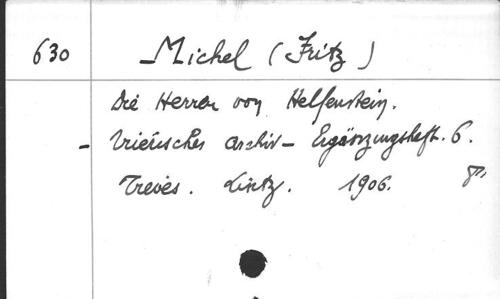 630 Michel (Fritz)
Die Herren von Helfenstein.
- Trierisches Archiv - Ergänzungsheft. 6.
Treves. Lintz. 1906. 8°